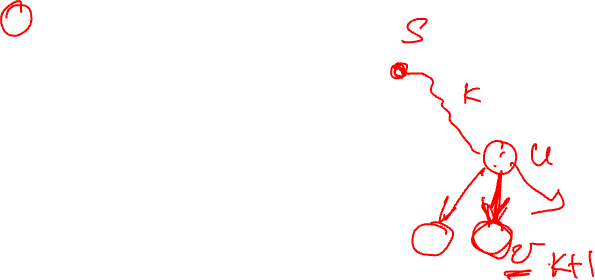 S
K
u
v k+1